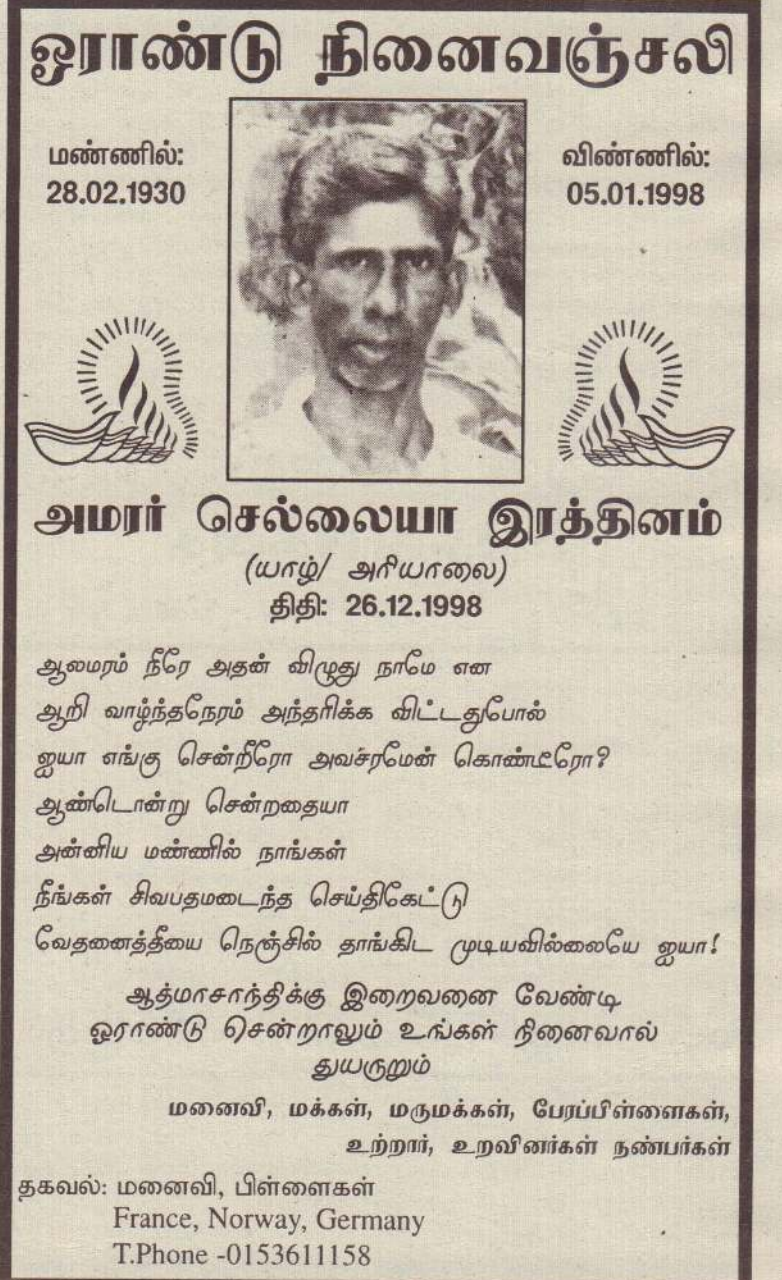 ஓராண்டு நினைவஞ்சலி
மண்ணில்:
28.02.1930
விண்ணில்:
05.01.1998
அமரர் செல்லையா இரத்தினம்
(யாழ்/ அரியாலை)
திதி: 26.12.1998
ஆலமரம் நீரே அதன் விழுது நாமே என
ஆறி வாழ்ந்தநேரம் அந்தரிக்க விட்டதுபோல்
ஐயா எங்கு சென்றீரோ அவசரமேன் கொண்டீரோ?
ஆண்டொன்று சென்றதையா
அன்னிய மண்ணில் நாங்கள்
நீங்கள் சிவபதமடைந்த செய்திகேட்டு
வேதனைத்தீயை நெஞ்சில் தாங்கிட முடியவில்லையே ஐயா!
ஆத்மாசாந்திக்கு இறைவனை வேண்டி
ஓராண்டு சென்றாலும் உங்கள் நினைவால்
துயருறும்
மனைவி, மக்கள், மருமக்கள், பேரப்பிள்ளைகள்,
உற்றார், உறவினர்கள் நண்பர்கள்
தகவல்: மனைவி, பிள்ளைகள்
France, Norway, Germany
T.Phone -0153611158